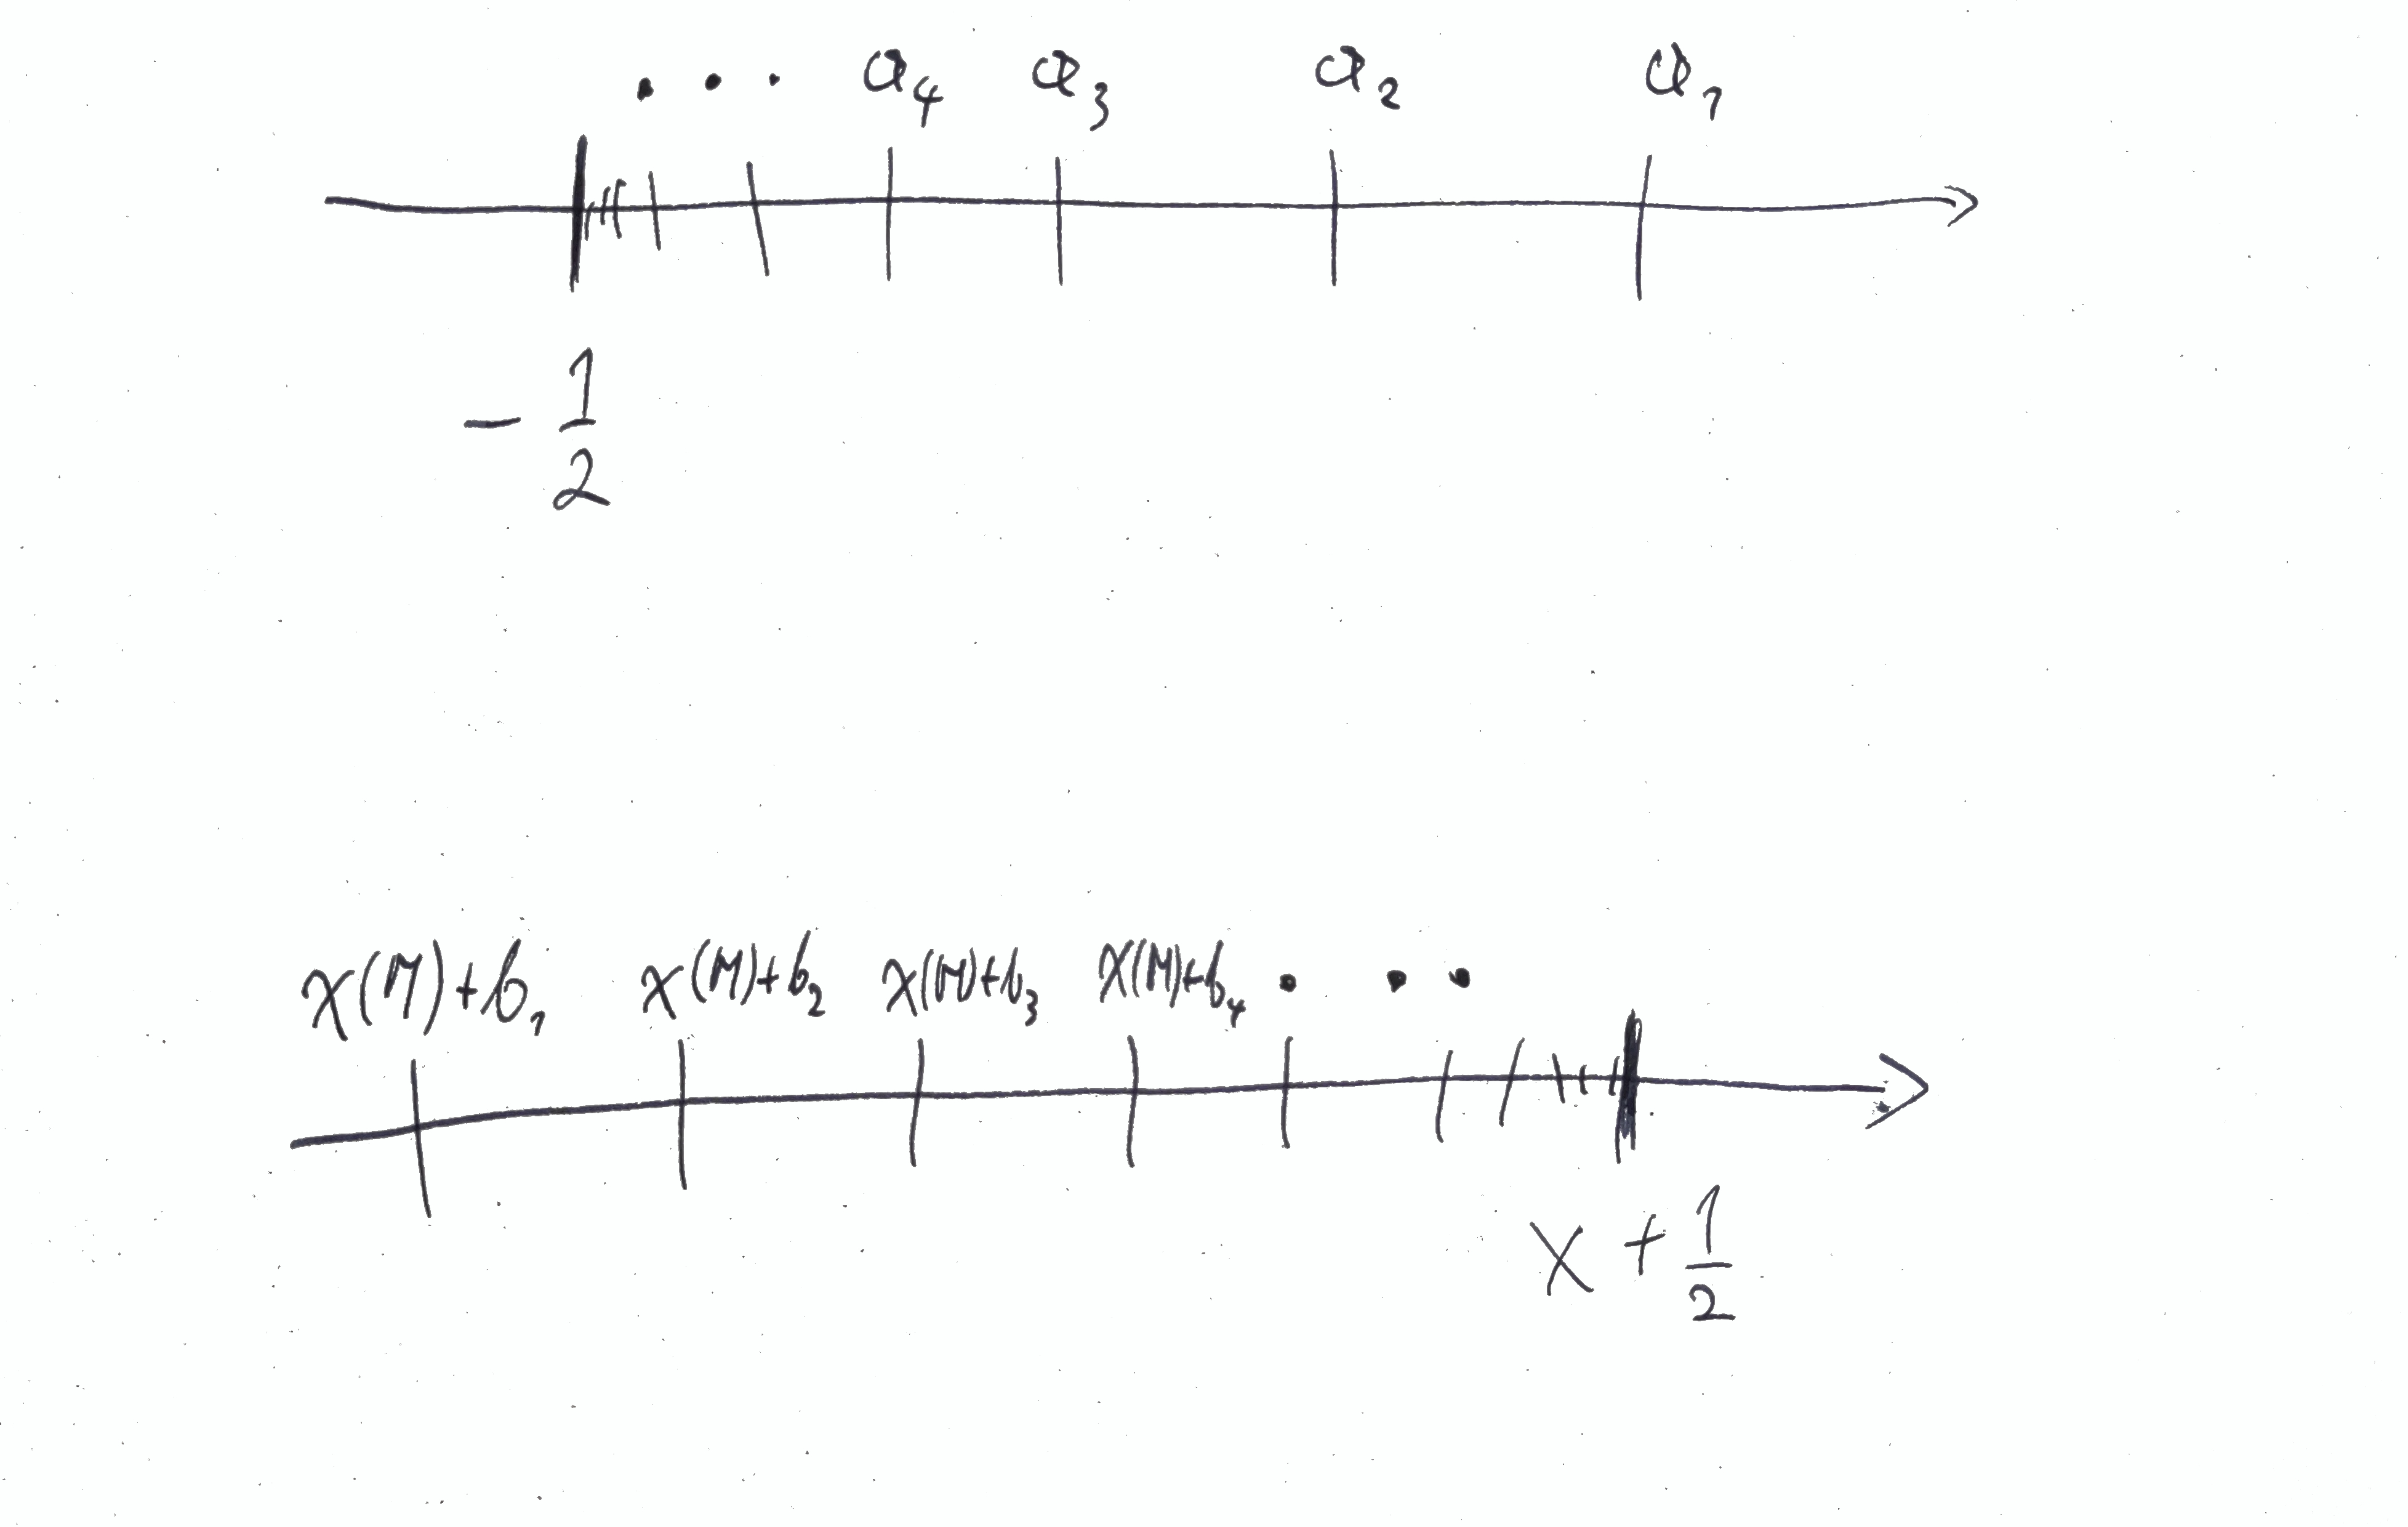 . . . a₄ a₃ a₂ a₁
- 1/2
χ(M)+b₁ χ(M)+b₂ χ(M)+b₃ χ(M)+b₄ . . .
χ + 1/2